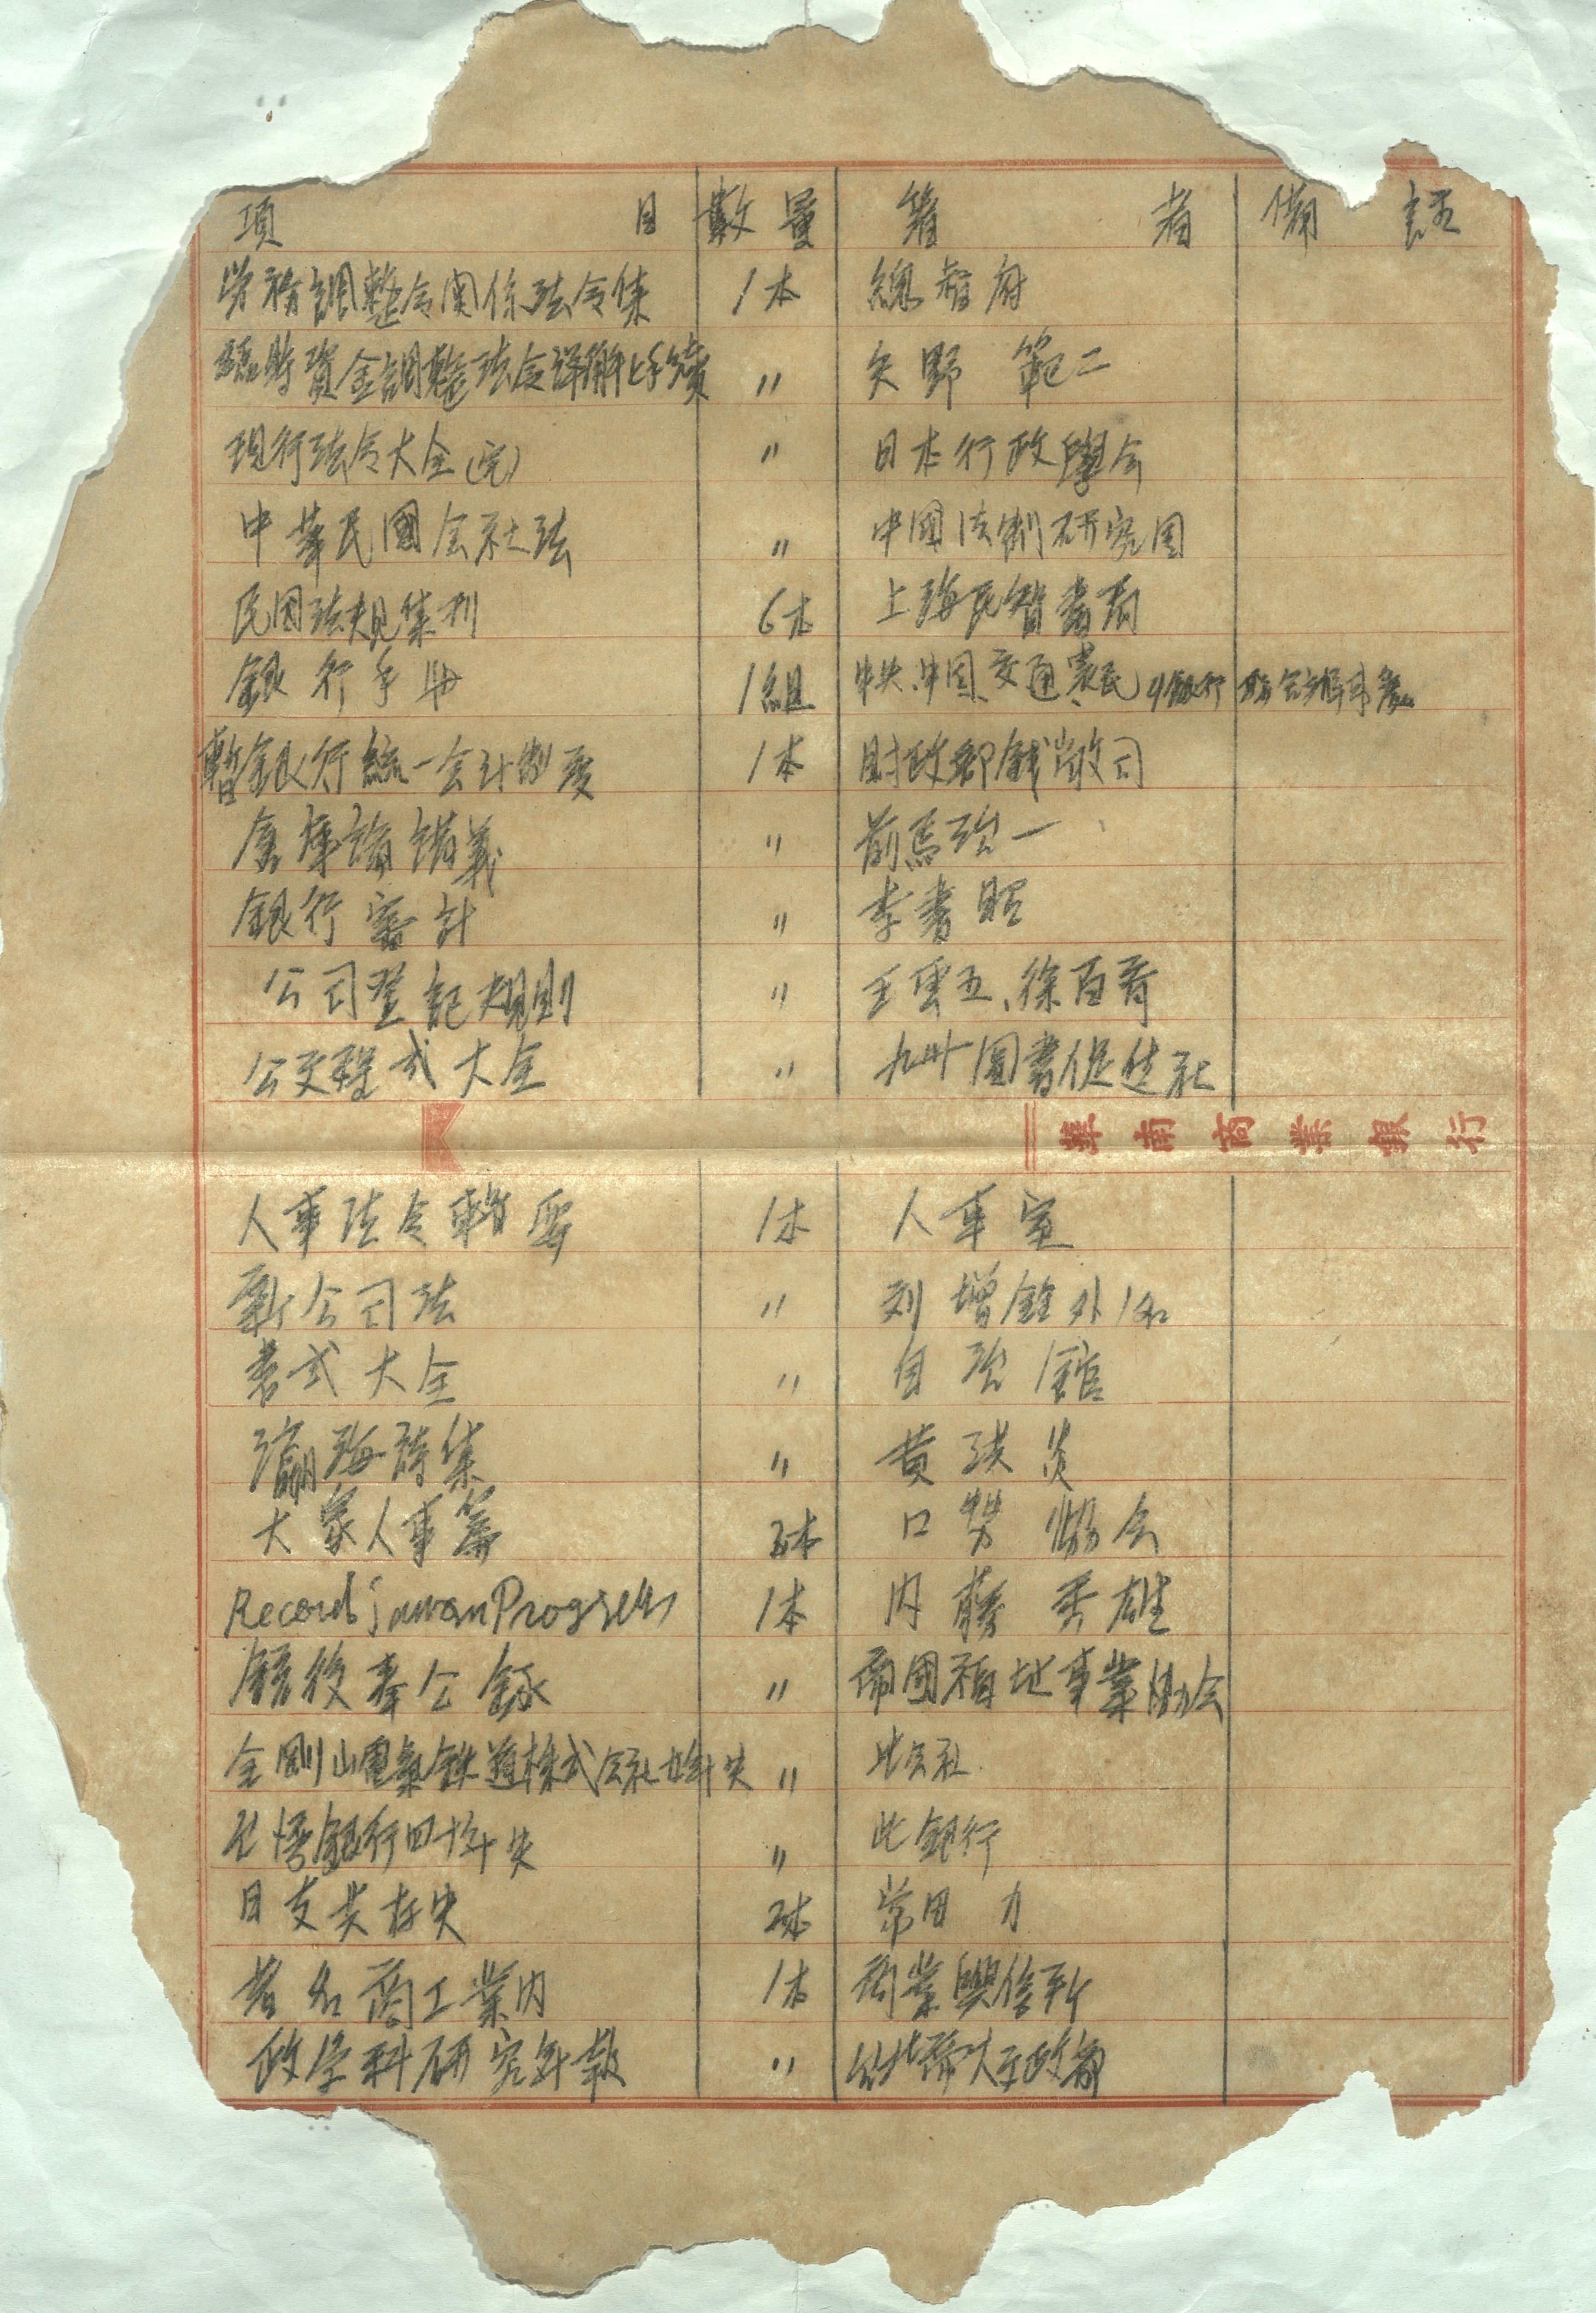 項目 數量 著者 備註
労務調整令関係法令集 1本 總督府
臨時資金調整法令詳解ト手續 〃 矢野 範二
現行法令大全(完) 〃 日本行政學会
中華民國会社法 〃 中國法制研究団
民国法規集刊 6本 上海民智書局
銀行手冊 1組 中央、中国、交通、農民
暫銀行統一会計制度 1本 財政部錢幣司
倉庫論講義 〃 治一
銀行審計 〃 李書
公司登記規則 〃 王雲五、徐百齊
公文程式大全 〃 九州圖書促進社
華南商業銀行
人事法令輯要 1本 人事室
新公司法 〃 刘增銓外1名
書式大全 〃 自治館
瀛海詩集 〃 黄洪炎
大衆人事 本 協会
Record Progress 1本 内藤秀雄
銃後奉公録 〃 帝國 地事業協会
金剛山電氣鉄道株式会社廿年史 〃 此会社
銀行四十年史 〃 此銀行
日支共存史 2本 常田 力
著名商工案内 1本 商業興信所
政学科研究年報 〃 台北帝大文政部